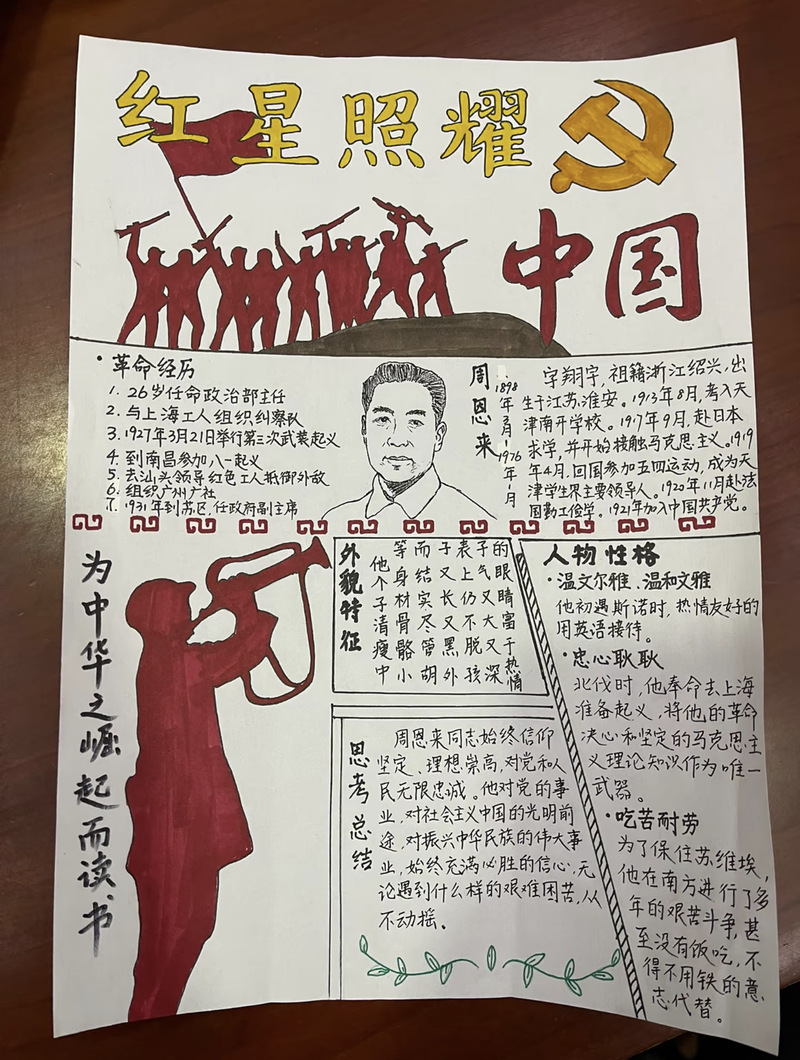 红星照耀
中国
·革命经历
1. 26岁任命政治部主任
2. 与上海工人组织纠察队
3. 1927年3月21日举行第三次武装起义
4. 到南昌参加八一起义
5. 去汕头领导红色工人抵御外敌
6. 组织广州广社
7. 1931年到苏区,任政府副主席
周恩来
1898年3月-1976年1月
字翔宇,祖籍浙江绍兴,出
生于江苏淮安。1913年8月,考入天
津南开学校。1917年9月,赴日本
求学,并开始接触马克思主义。1919
年4月,回国参加五四运动,成为天
津学生界主要领导人。1920年11月赴法
国勤工俭学。1921年加入中国共产党。
为中华之崛起而读书
外貌特征
他个子清瘦中
等身材骨骼小
而结实尽管胡
子又长又黑外
表上仍不脱孩
子气又大又深
的眼睛富于热情
思考总结
周恩来同志始终信仰
坚定、理想崇高,对党和人
民无限忠诚。他对党的事
业,对社会主义中国的光明前
途,对振兴中华民族的伟大事
业,始终充满必胜的信心,无
论遇到什么样的艰难困苦,从
不动摇。
人物性格
·温文尔雅、温和文雅
他初遇斯诺时,热情友好的
用英语接待。
·忠心耿耿
北伐时,他奉命去上海
准备起义,将他的革命
决心和坚定的马克思主
义理论知识作为唯一
武器。
·吃苦耐劳
为了保住苏维埃,
他在南方进行了多
年的艰苦斗争,甚
至没有饭吃,不
得不用铁的意
志代替。